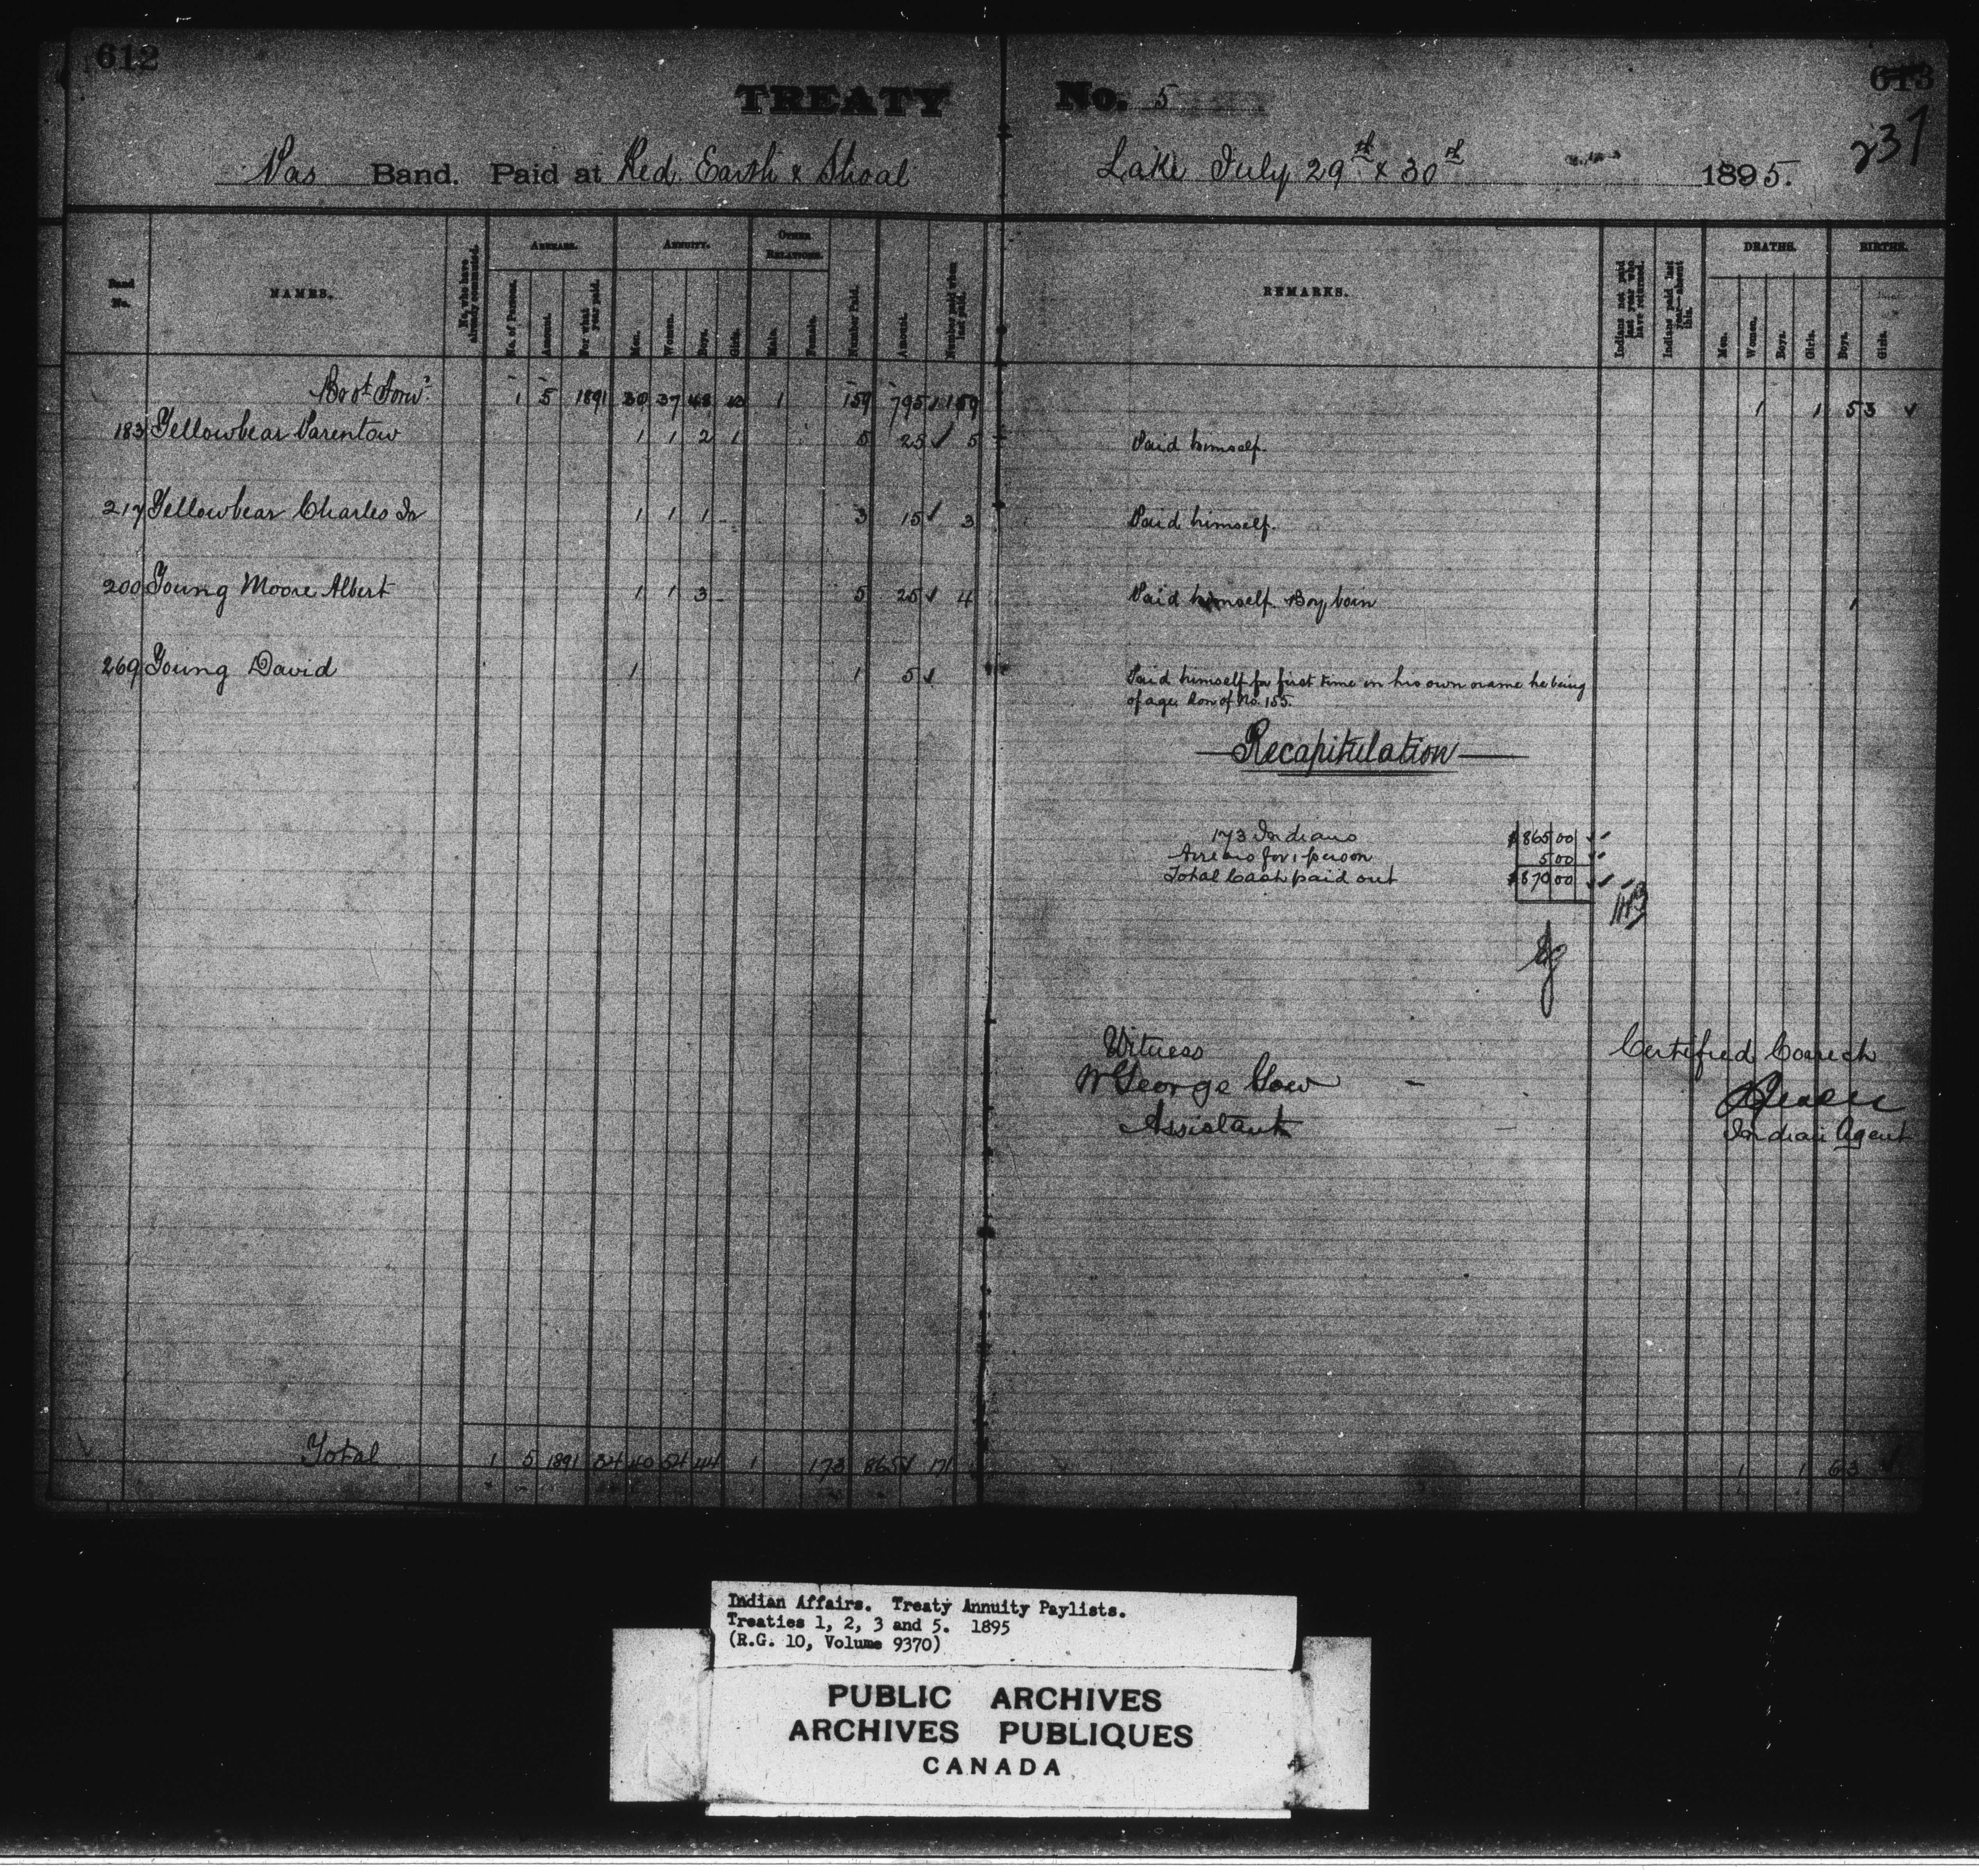 612
613
237
TREATY No. 5
Pas Band. Paid at Red Earth & Shoal Lake July 29th & 30th 1895.
Band No.
NAMES.
No. who have already commuted.
ARREARS.
No. of Persons.
Amount.
For what year paid.
ANNUITY.
Men.
Women.
Boys.
Girls.
OTHER RELATIONS.
Male.
Female.
Number Paid.
Amount.
Number paid when last paid.
REMARKS.
Indians not paid last year who have returned.
Indians paid last year—absent this.
DEATHS.
Men.
Women.
Boys.
Girls.
BIRTHS.
Boys.
Girls.
Bro't Forwd 1 5 1891 30 37 48 43 1 159 795 159 1 1 5 3
183 Yellowbear Parentow 1 1 2 1 5 25 5 Paid himself.
217 Yellowbear Charles Jr 1 1 1 3 15 3 Paid himself.
200 Young Moore Albert 1 1 3 5 25 4 Paid himself. Boy born 1
269 Young David 1 1 5 Paid himself for first time in his own name he being
of age. Son of No. 155.
Recapitulation
173 Indians $865 00
Arrears for 1 person 5 00
Total Cash paid out $870 00
Witness
W George Gow
Assistant
Certified Correct
Indian Agent
Total 1 5 1891 34 40 54 44 1 173 865 171 1 1 6 3
Indian Affairs. Treaty Annuity Paylists.
Treaties 1, 2, 3 and 5. 1895
(R.G. 10, Volume 9370)
PUBLIC ARCHIVES
ARCHIVES PUBLIQUES
CANADA